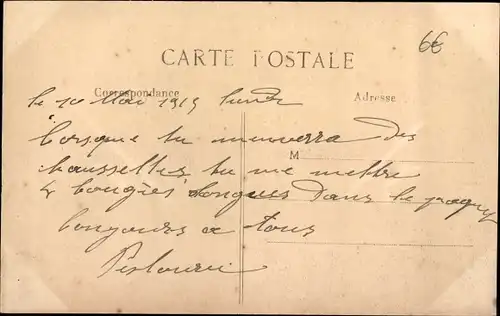 6€
CARTE POSTALE
Correspondance
Adresse
le 10 Mai 1915 lundi
Lorsque tu menverra des
M
chaussettes tu me mettre
4 bougies longues dans le paquet
bonjours a tous